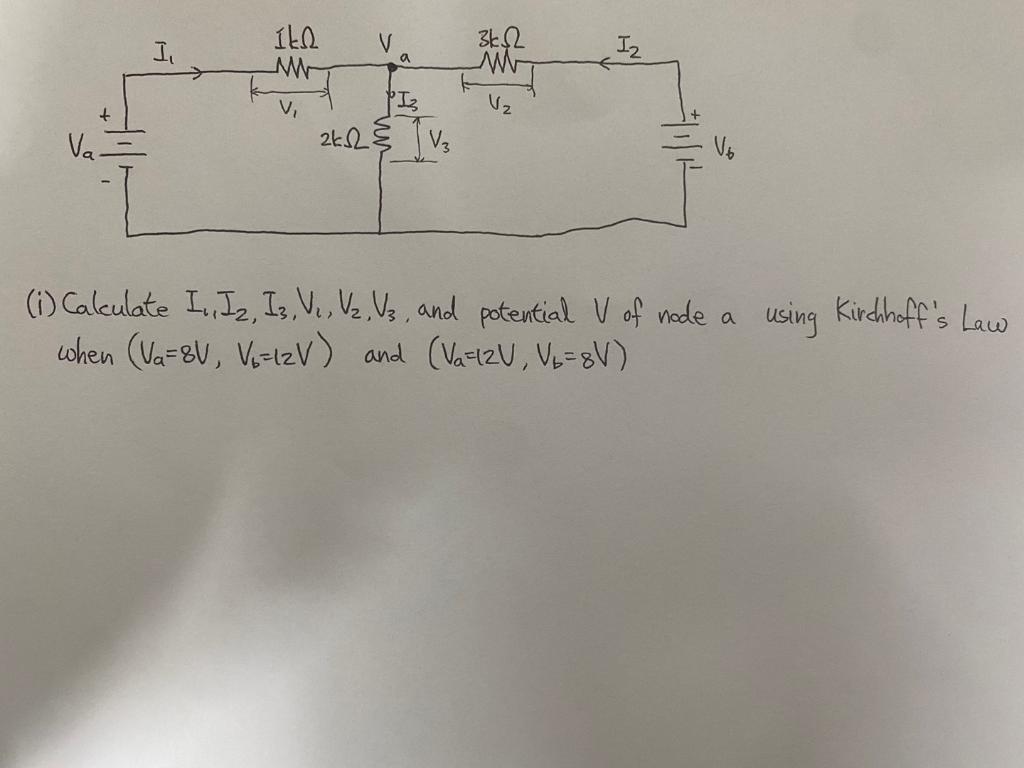 I₁ 1kΩ V a 3kΩ I₂
V₁ I₃ V₂
+ 2kΩ V₃ +
Va Vb
- -
(i) Calculate I₁, I₂, I₃, V₁, V₂, V₃, and potential V of node a using Kirchhoff's Law
when (Va=8V, Vb=12V) and (Va=12V, Vb=8V)